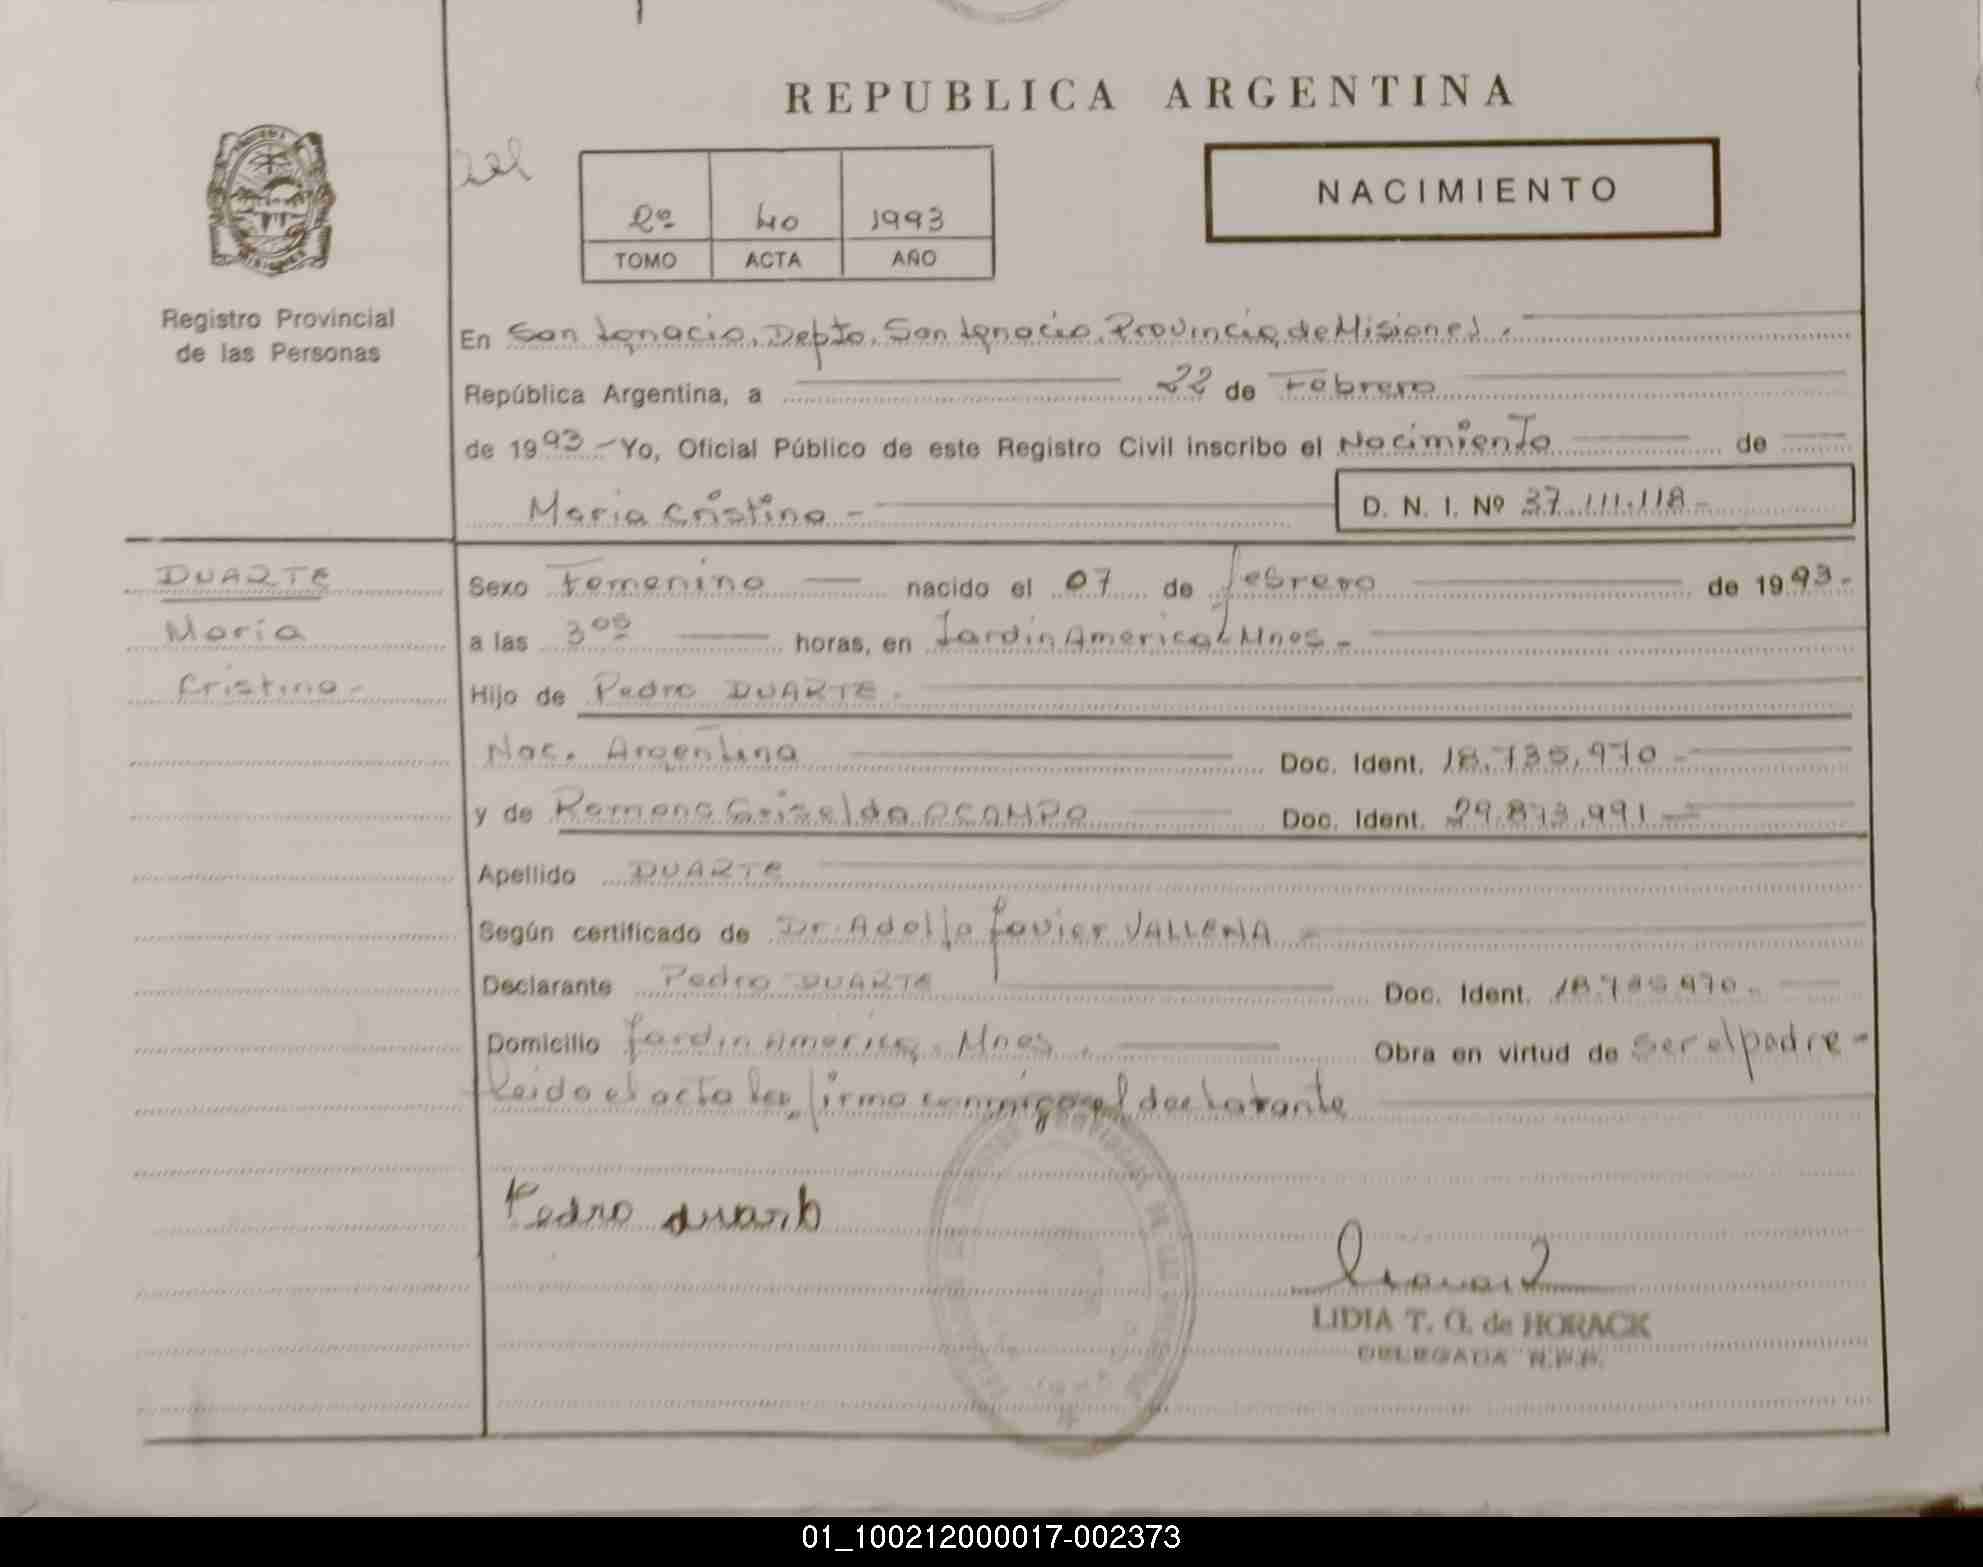 REPUBLICA ARGENTINA
NACIMIENTO
2º 40 1993
TOMO ACTA AÑO
Registro Provincial
de las Personas
En San Ignacio, Depto. San Ignacio, Provincia de Misiones.
República Argentina, a 22 de Febrero
de 1993.- Yo, Oficial Público de este Registro Civil inscribo el Nacimiento de
Maria Cristina - D. N. I. Nº 37.111.118-
DUARTE
Maria
Cristina-
Sexo Femenino nacido el 07 de febrero de 1993.-
a las 3 horas, en Jardin America Mnes-
Hijo de Pedro DUARTE.
Nac. Argentina Doc. Ident. 18.735.970-
y de Ramona Griselda OCAMPO Doc. Ident. 29.873.991-
Apellido DUARTE
Según certificado de Dr. Adolfo Javier
Declarante Pedro DUARTE Doc. Ident. 18.735.970.-
Domicilio Jardin America, Mnes. Obra en virtud de ser el padre-
leido el acta firma conmigo el declarante
Pedro duarte
LIDIA T. G. de HORACK
DELEGADA R.P.P.
01_100212000017-002373